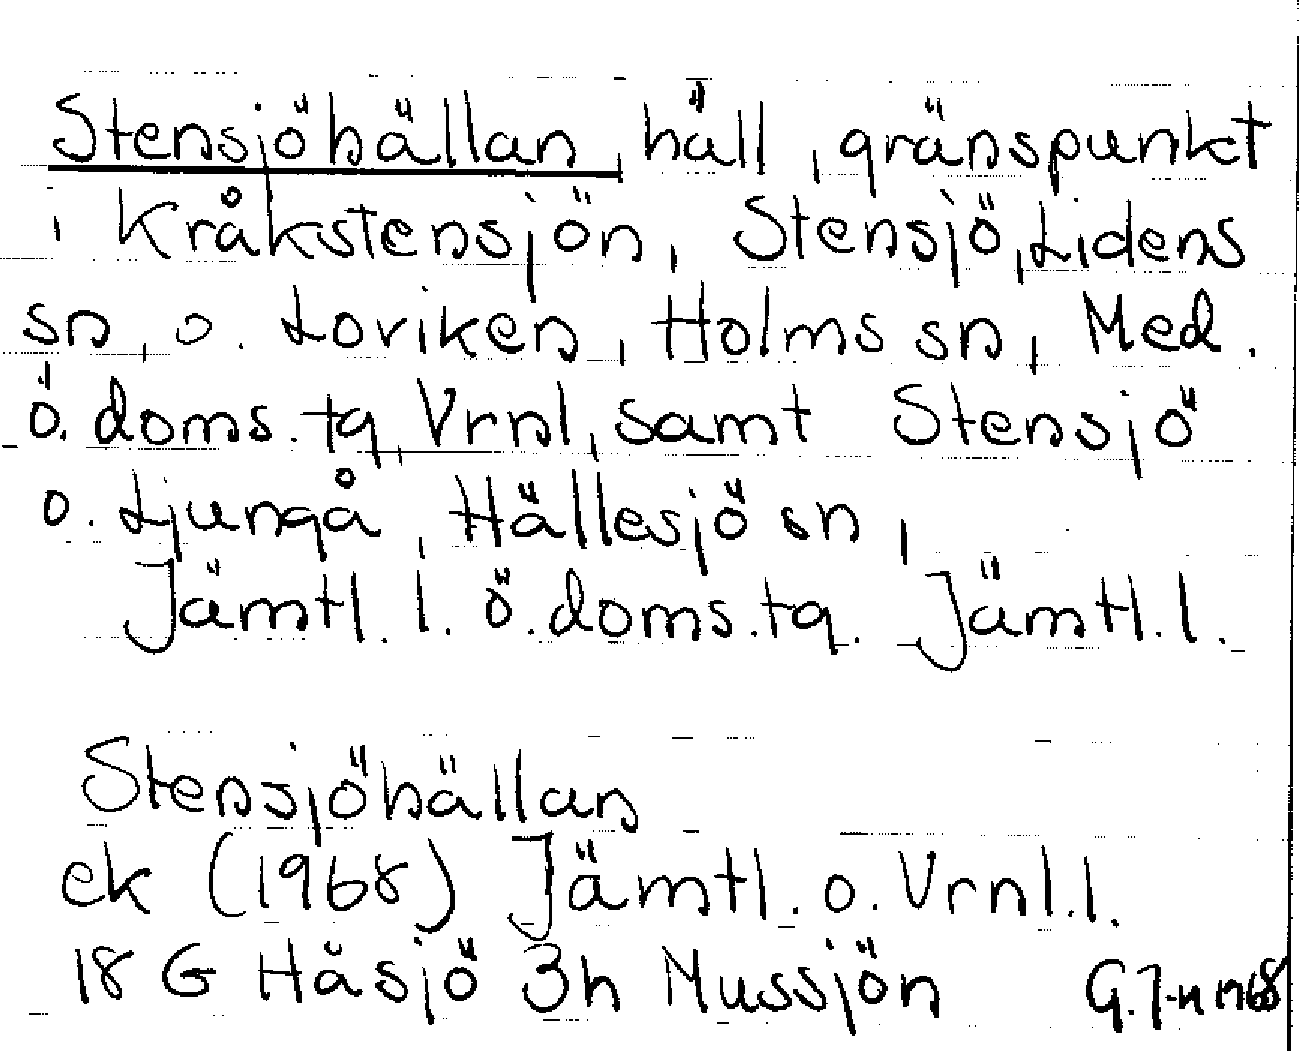 Stensjöhällan, häll, gränspunkt
i Kråkstensjön, Stensjö, Lidens
sn, o. Loviken, Holms sn, Med.
Ö. doms. tg, Vrnl, samt Stensjö
o. Ljungå, Hällesjö sn,
Jämtl. l. Ö. doms. tg. Jämtl. l.
Stensjöhällan
ek (1968) Jämtl. o. Vrnl. l.
18 G Håsjö 3h Mussjön G. J-n 1968